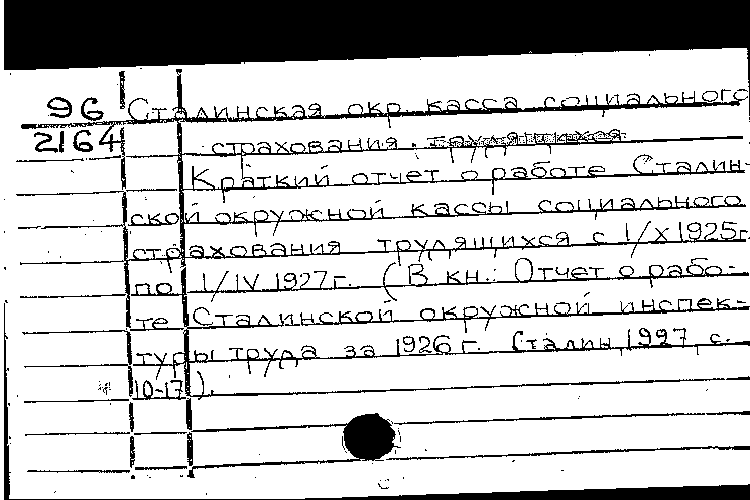 96 Сталинская окр. касса социального
2164 страхования.
Краткий отчет о работе Сталин-
ской окружной кассы социального
страхования трудящихся с 1/X 1925г.
по 1/IV 1927г. (В кн.: Отчет о рабо-
те Сталинской окружной инспек-
туры труда за 1926 г. Сталин, 1927, с.
10-17).